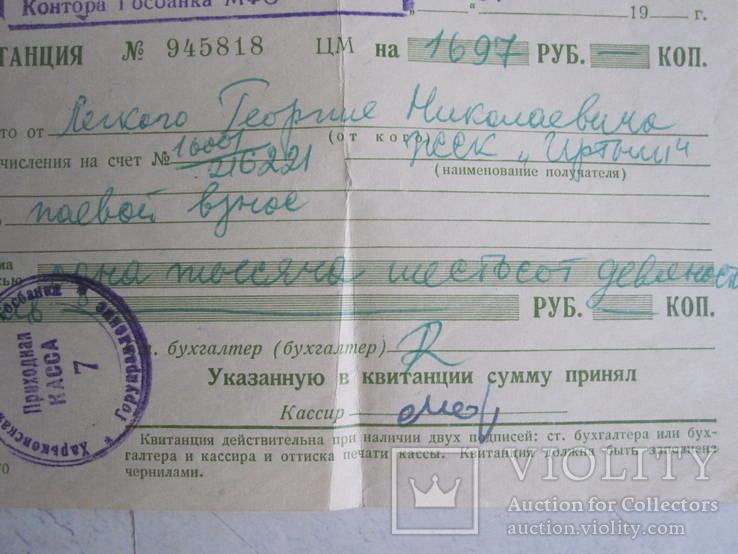 Контора Госбанка МФО
19 г.
ТАНЦИЯ № 945818 ЦМ на 1697 РУБ. — КОП.
то от Легкого Георгие Николаевича
(от кого)
числения на счет № 216221 ЖСК „Иртыш"
(наименование получателя)
паевой взнос
ма
сью одна тысяча шестьсот девяност
РУБ. — КОП.
т. бухгалтер (бухгалтер)
Указанную в квитанции сумму принял
Кассир
Квитанция действительна при наличии двух подписей: ст. бухгалтера или бух-
галтера и кассира и оттиска печати кассы. Квитанция должна быть заполнена
чернилами.
Приходная
КАССА
7
Харьковская
Горуправление
Госбанка
VIOLITY
Auction for Collectors
auction.violity.com